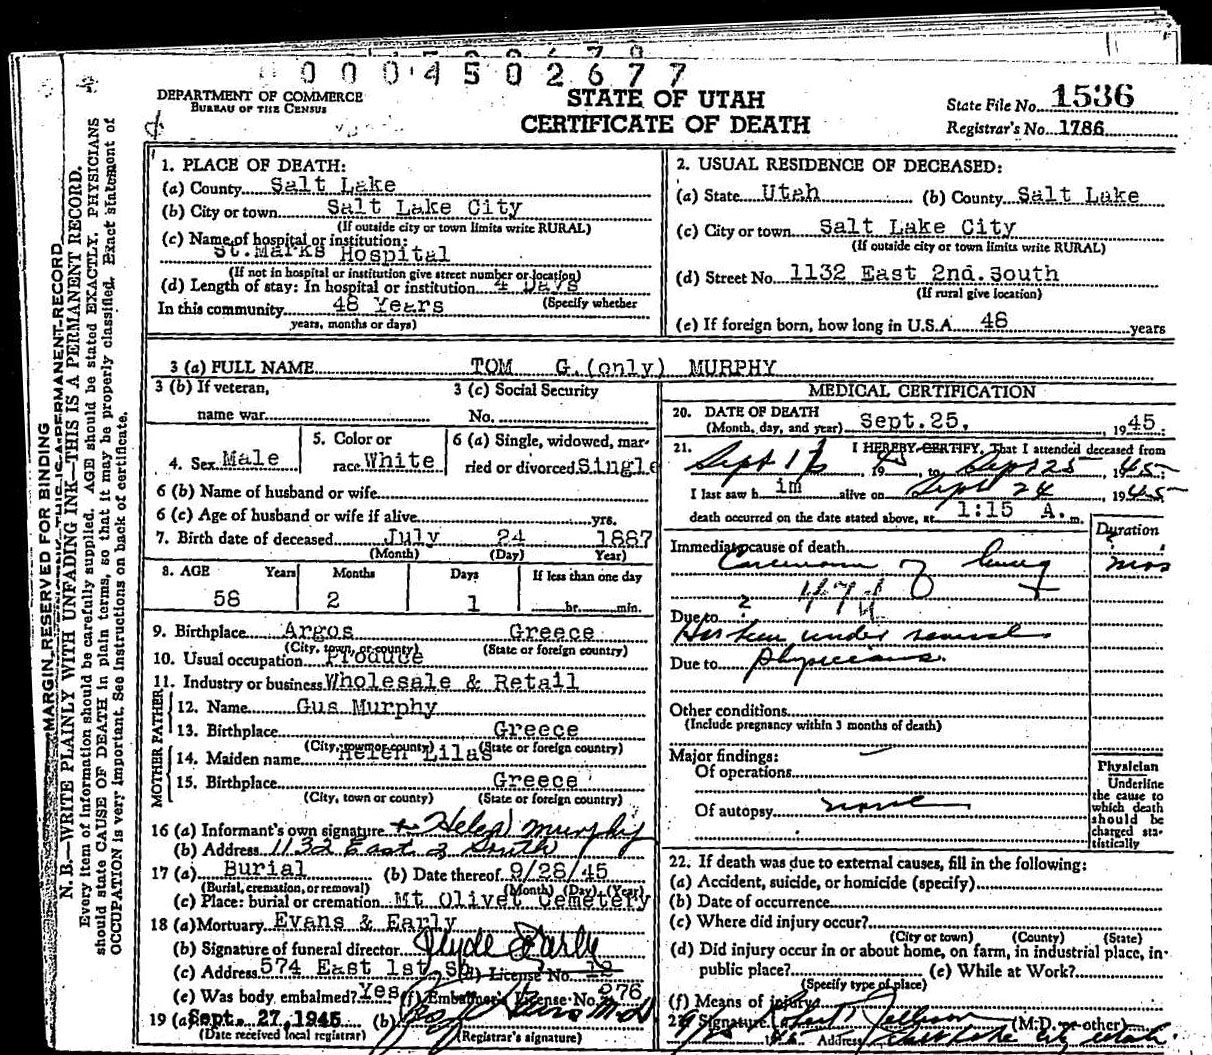 0004502677
DEPARTMENT OF COMMERCE
BUREAU OF THE CENSUS
STATE OF UTAH
CERTIFICATE OF DEATH
State File No. 1536
Registrar's No. 1786
MARGIN RESERVED FOR BINDING
N. B.—WRITE PLAINLY WITH UNFADING INK—THIS IS A PERMANENT RECORD.
Every item of information should be carefully supplied. AGE should be stated EXACTLY. PHYSICIANS
should state CAUSE OF DEATH in plain terms, so that it may be properly classified. Exact statement of
OCCUPATION is very important. See instructions on back of certificate.
1. PLACE OF DEATH:
(a) County Salt Lake
(b) City or town Salt Lake City
(If outside city or town limits write RURAL)
(c) Name of hospital or institution:
St. Marks Hospital
(If not in hospital or institution give street number or location)
(d) Length of stay: In hospital or institution 4 Days
(Specify whether
In this community 48 Years
years, months or days)
2. USUAL RESIDENCE OF DECEASED:
(a) State Utah (b) County Salt Lake
(c) City or town Salt Lake City
(If outside city or town limits write RURAL)
(d) Street No. 1132 East 2nd. South
(If rural give location)
(e) If foreign born, how long in U.S.A. 48 years
3 (a) FULL NAME TOM G.(only) MURPHY
3 (b) If veteran,
name war
3 (c) Social Security
No.
4. Sex Male
5. Color or
race White
6 (a) Single, widowed, mar-
ried or divorced Single
6 (b) Name of husband or wife
6 (c) Age of husband or wife if alive yrs.
7. Birth date of deceased July 24 1887
(Month) (Day) Year)
8. AGE Years Months Days If less than one day
58 2 1 hr. min.
9. Birthplace Argos Greece
(City, town, or county) (State or foreign country)
10. Usual occupation Produce
11. Industry or business Wholesale & Retail
FATHER
12. Name Gus Murphy
13. Birthplace Greece
(City, town or county) (State or foreign country)
MOTHER
14. Maiden name Helen Lilas
15. Birthplace Greece
(City, town or county) (State or foreign country)
16 (a) Informant's own signature Helen Murphy
(b) Address 1132 East 2 South
17 (a) Burial (b) Date thereof 9/28/45
(Burial, cremation, or removal) (Month) (Day) (Year)
(c) Place: burial or cremation Mt Olivet Cemetery
18 (a) Mortuary Evans & Early
(b) Signature of funeral director Clyde Early
(c) Address 574 East 1st. So. (d) License No. 12
(e) Was body embalmed? Yes (f) Embalmer's License No. 276
19 (a) Sept. 27, 1945 (b) M.D.
(Date received local registrar) (Registrar's signature)
MEDICAL CERTIFICATION
20. DATE OF DEATH
(Month, day, and year) Sept. 25, 1945:
21. I HEREBY CERTIFY, That I attended deceased from
Sept 1945 to Sept 25 1945
I last saw him alive on Sept 24 1945
death occurred on the date stated above, at 1:15 A. m.
Duration
Immediate cause of death
Carcinoma of lung mos
47
Due to ?
Has been under several
Due to physicians.
Other conditions
(Include pregnancy within 3 months of death)
Major findings:
Of operations
Of autopsy none
Physician
Underline
the cause to
which death
should be
charged sta-
tistically
22. If death was due to external causes, fill in the following:
(a) Accident, suicide, or homicide (specify)
(b) Date of occurrence
(c) Where did injury occur?
(City or town) (County) (State)
(d) Did injury occur in or about home, on farm, in industrial place, in
public place? (e) While at Work?
(Specify type of place)
(f) Means of injury
23. Signature Robert (M.D. or other)
Address Salt Lake City Utah